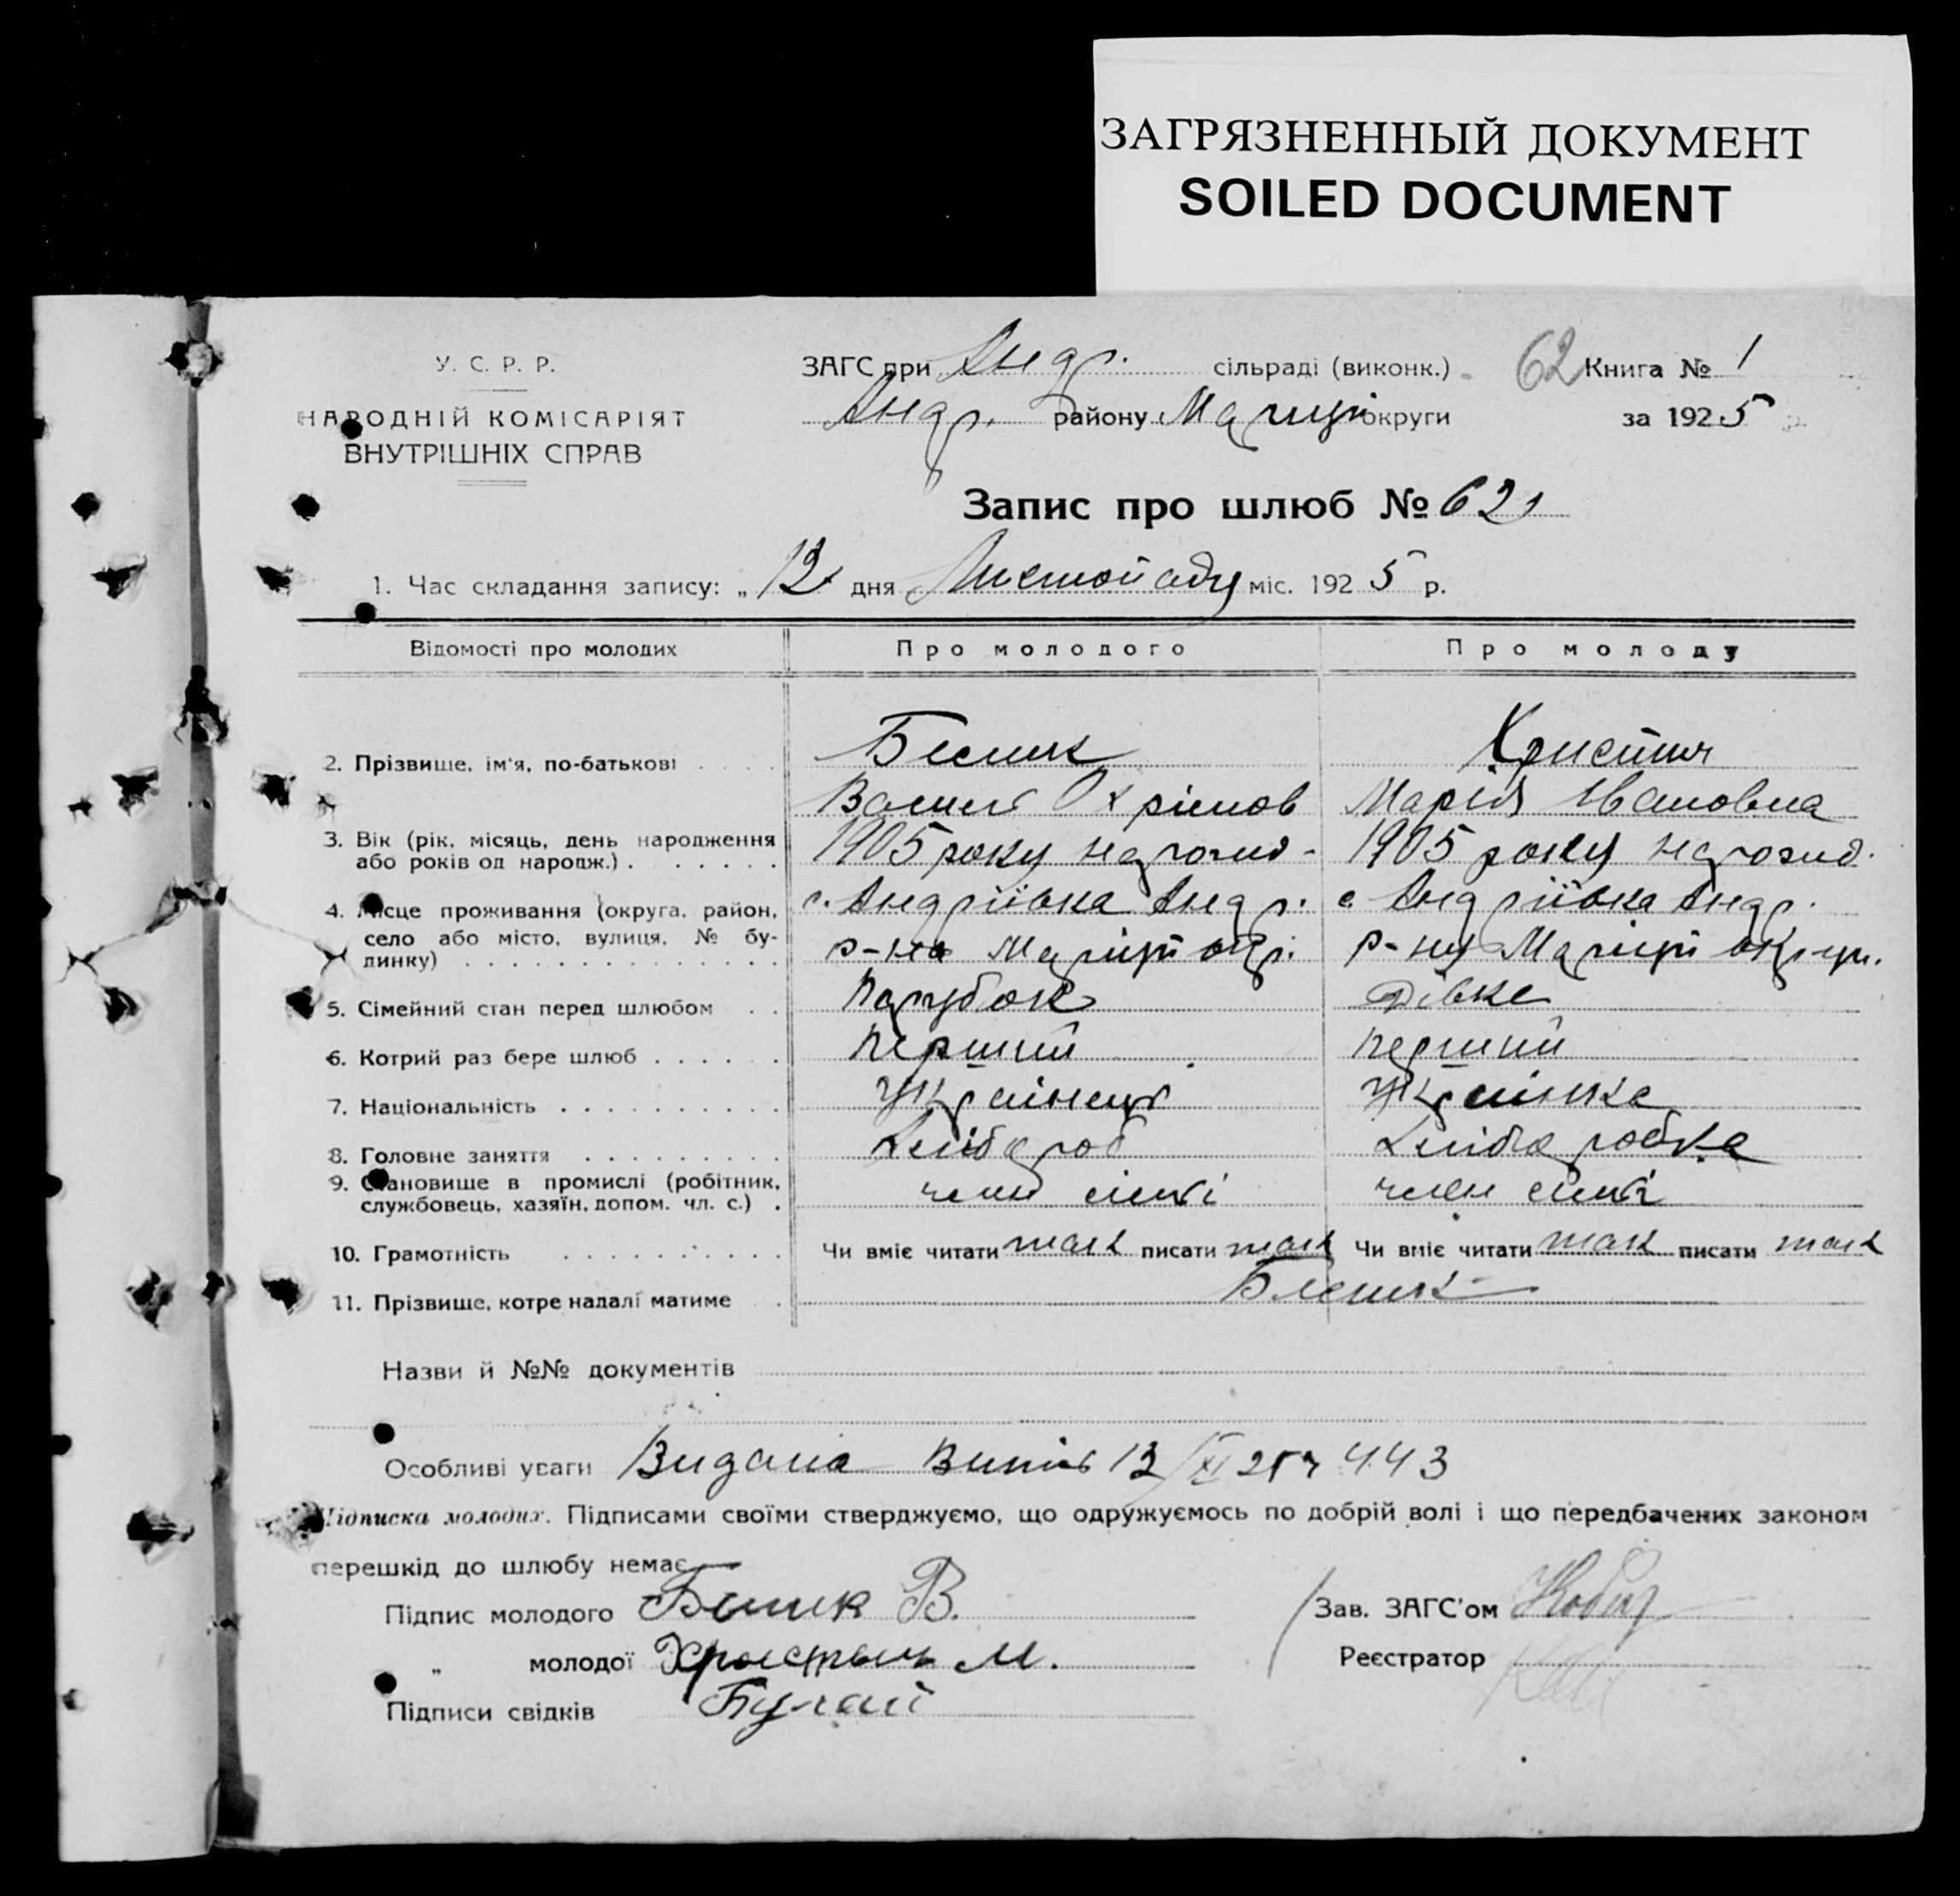 ЗАГРЯЗНЕННЫЙ ДОКУМЕНТ
SOILED DOCUMENT
У. С. Р. Р.
НАРОДНІЙ КОМІСАРІЯТ
ВНУТРІШНІХ СПРАВ
ЗАГС при Андр. сільраді (виконк.)
Андр. району Маріуп округи
62 Книга № 1
за 1925 р.
Запис про шлюб № 62
1. Час складання запису: „12 дня Листопаду міс. 1925 р.
Відомості про молодих Про молодого Про молоду
2. Прізвище, ім'я, по-батькові Християн
Василь Охрімов Марія Івановна
3. Вік (рік, місяць, день народження або років од народж.) 1905 року народив. 1905 року народ.
4. Місце проживання (округа, район, село або місто, вулиця, № будинку) с. Андріївка Андр. с. Андріївка Андр.
р-на Маріуп окр. р-ну Маріуп округи.
5. Сімейний стан перед шлюбом Парубок Дівка
6. Котрий раз бере шлюб Перший Перший
7. Національність Украінець Украінка
8. Головне заняття Хлібороб Хлібаробка
9. Становище в промислі (робітник, службовець, хазяїн, допом. чл. с.) член сімʼі член сімʼі
10. Грамотність Чи вміє читати так писати так Чи вміє читати так писати так
11. Прізвище, котре надалі матиме
Назви й №№ документів
Особливі уваги Видана 12/XI 25 р 443
Підписка молодих. Підписами своїми стверджуємо, що одружуємось по добрій волі і що передбачених законом
перешкід до шлюбу немає
Підпис молодого В.
„ молодої М.
Підписи свідків
Зав. ЗАГС'ом
Реєстратор